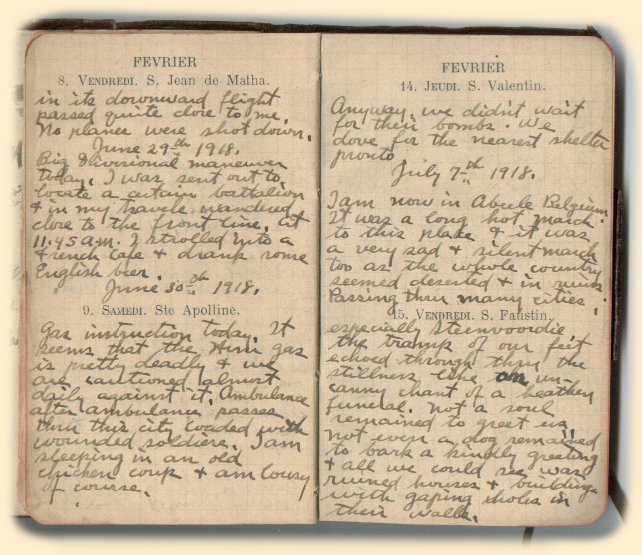 FEVRIER
8. VENDREDI. S. Jean de Matha.
in its downward flight
passed quite close to me.
No planes were shot down.
June 29th 1918.
Big Divisional maneuver
today. I was sent out to
locate a certain battalion
& in my travels wandered
close to the front line. At
11.45 A.M. I strolled into a
french cafe & drank some
English beer.
June 30th 1918.
9. SAMEDI. Ste Apolline.
Gas instruction today. It
seems that the Hun gas
is pretty deadly & we
are cautioned almost
daily against it. Ambulance
after ambulance passes
thru this city loaded with
wounded soldiers. I am
sleeping in an old
chicken coup & am lousy
of course.
FEVRIER
14. JEUDI. S. Valentin.
Anyway, we didn't wait
for their bombs. We
dove for the nearest shelter
pronto
July 7th 1918.
I am now in Abeele Belgium.
It was a long hot march
to this place & it was
a very sad & silent march
too as the whole country
seemed deserted & in ruins.
Passing thru many cities,
15. VENDREDI. S. Faustin.
especially Steenvoordie,
the tramp of our feet
echoed through thru the
stillness like an un-
canny chant of a heathen
funeral. Not a soul
remained to greet us,
not even a dog remained
to bark a kindly greeting
& all we could see was
ruined houses & buildings
with gaping holes in
their walls.